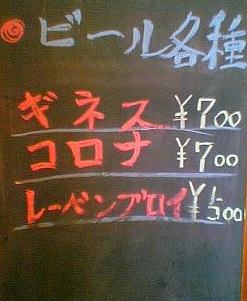 ビール各種
ギネス ¥700
コロナ ¥700
レーベンブロイ ¥500